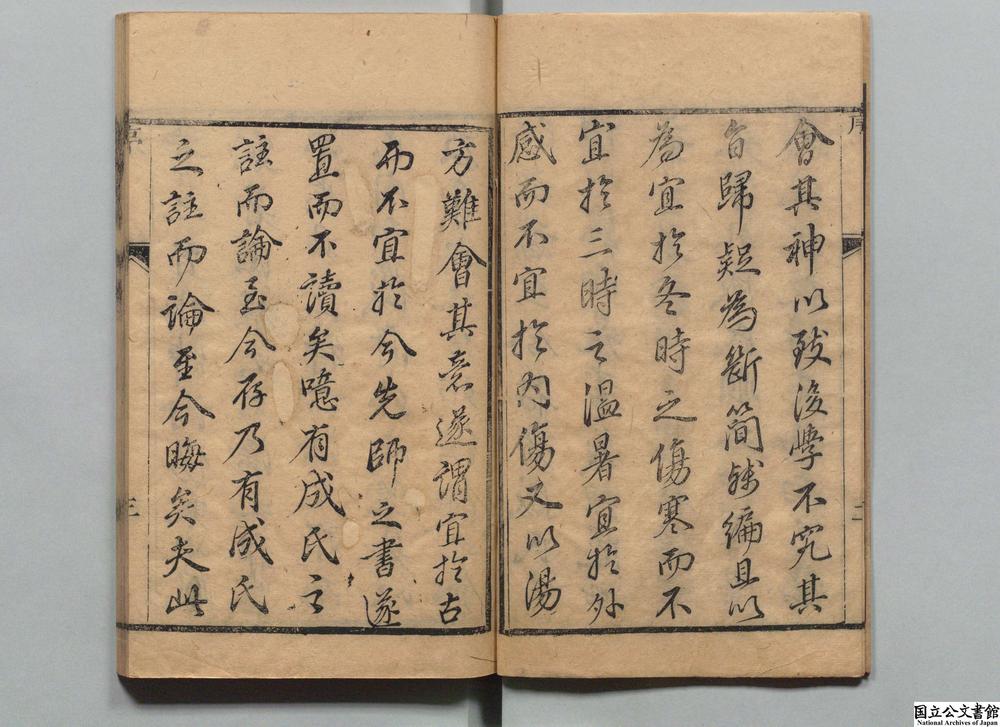 序
會其神以致後學不究其
旨歸疑為斷簡殘編且以
為宜於冬時之傷寒而不
宜於三時之溫暑宜於外
感而不宜於內傷又以湯
二
方難會其意遂謂宜於古
而不宜於今先師之書遂
置而不讀矣噫有成氏之
註而論至今存乃有成氏
之註而論至今晦矣夫此
序
三
国立公文書館
National Archives of Japan